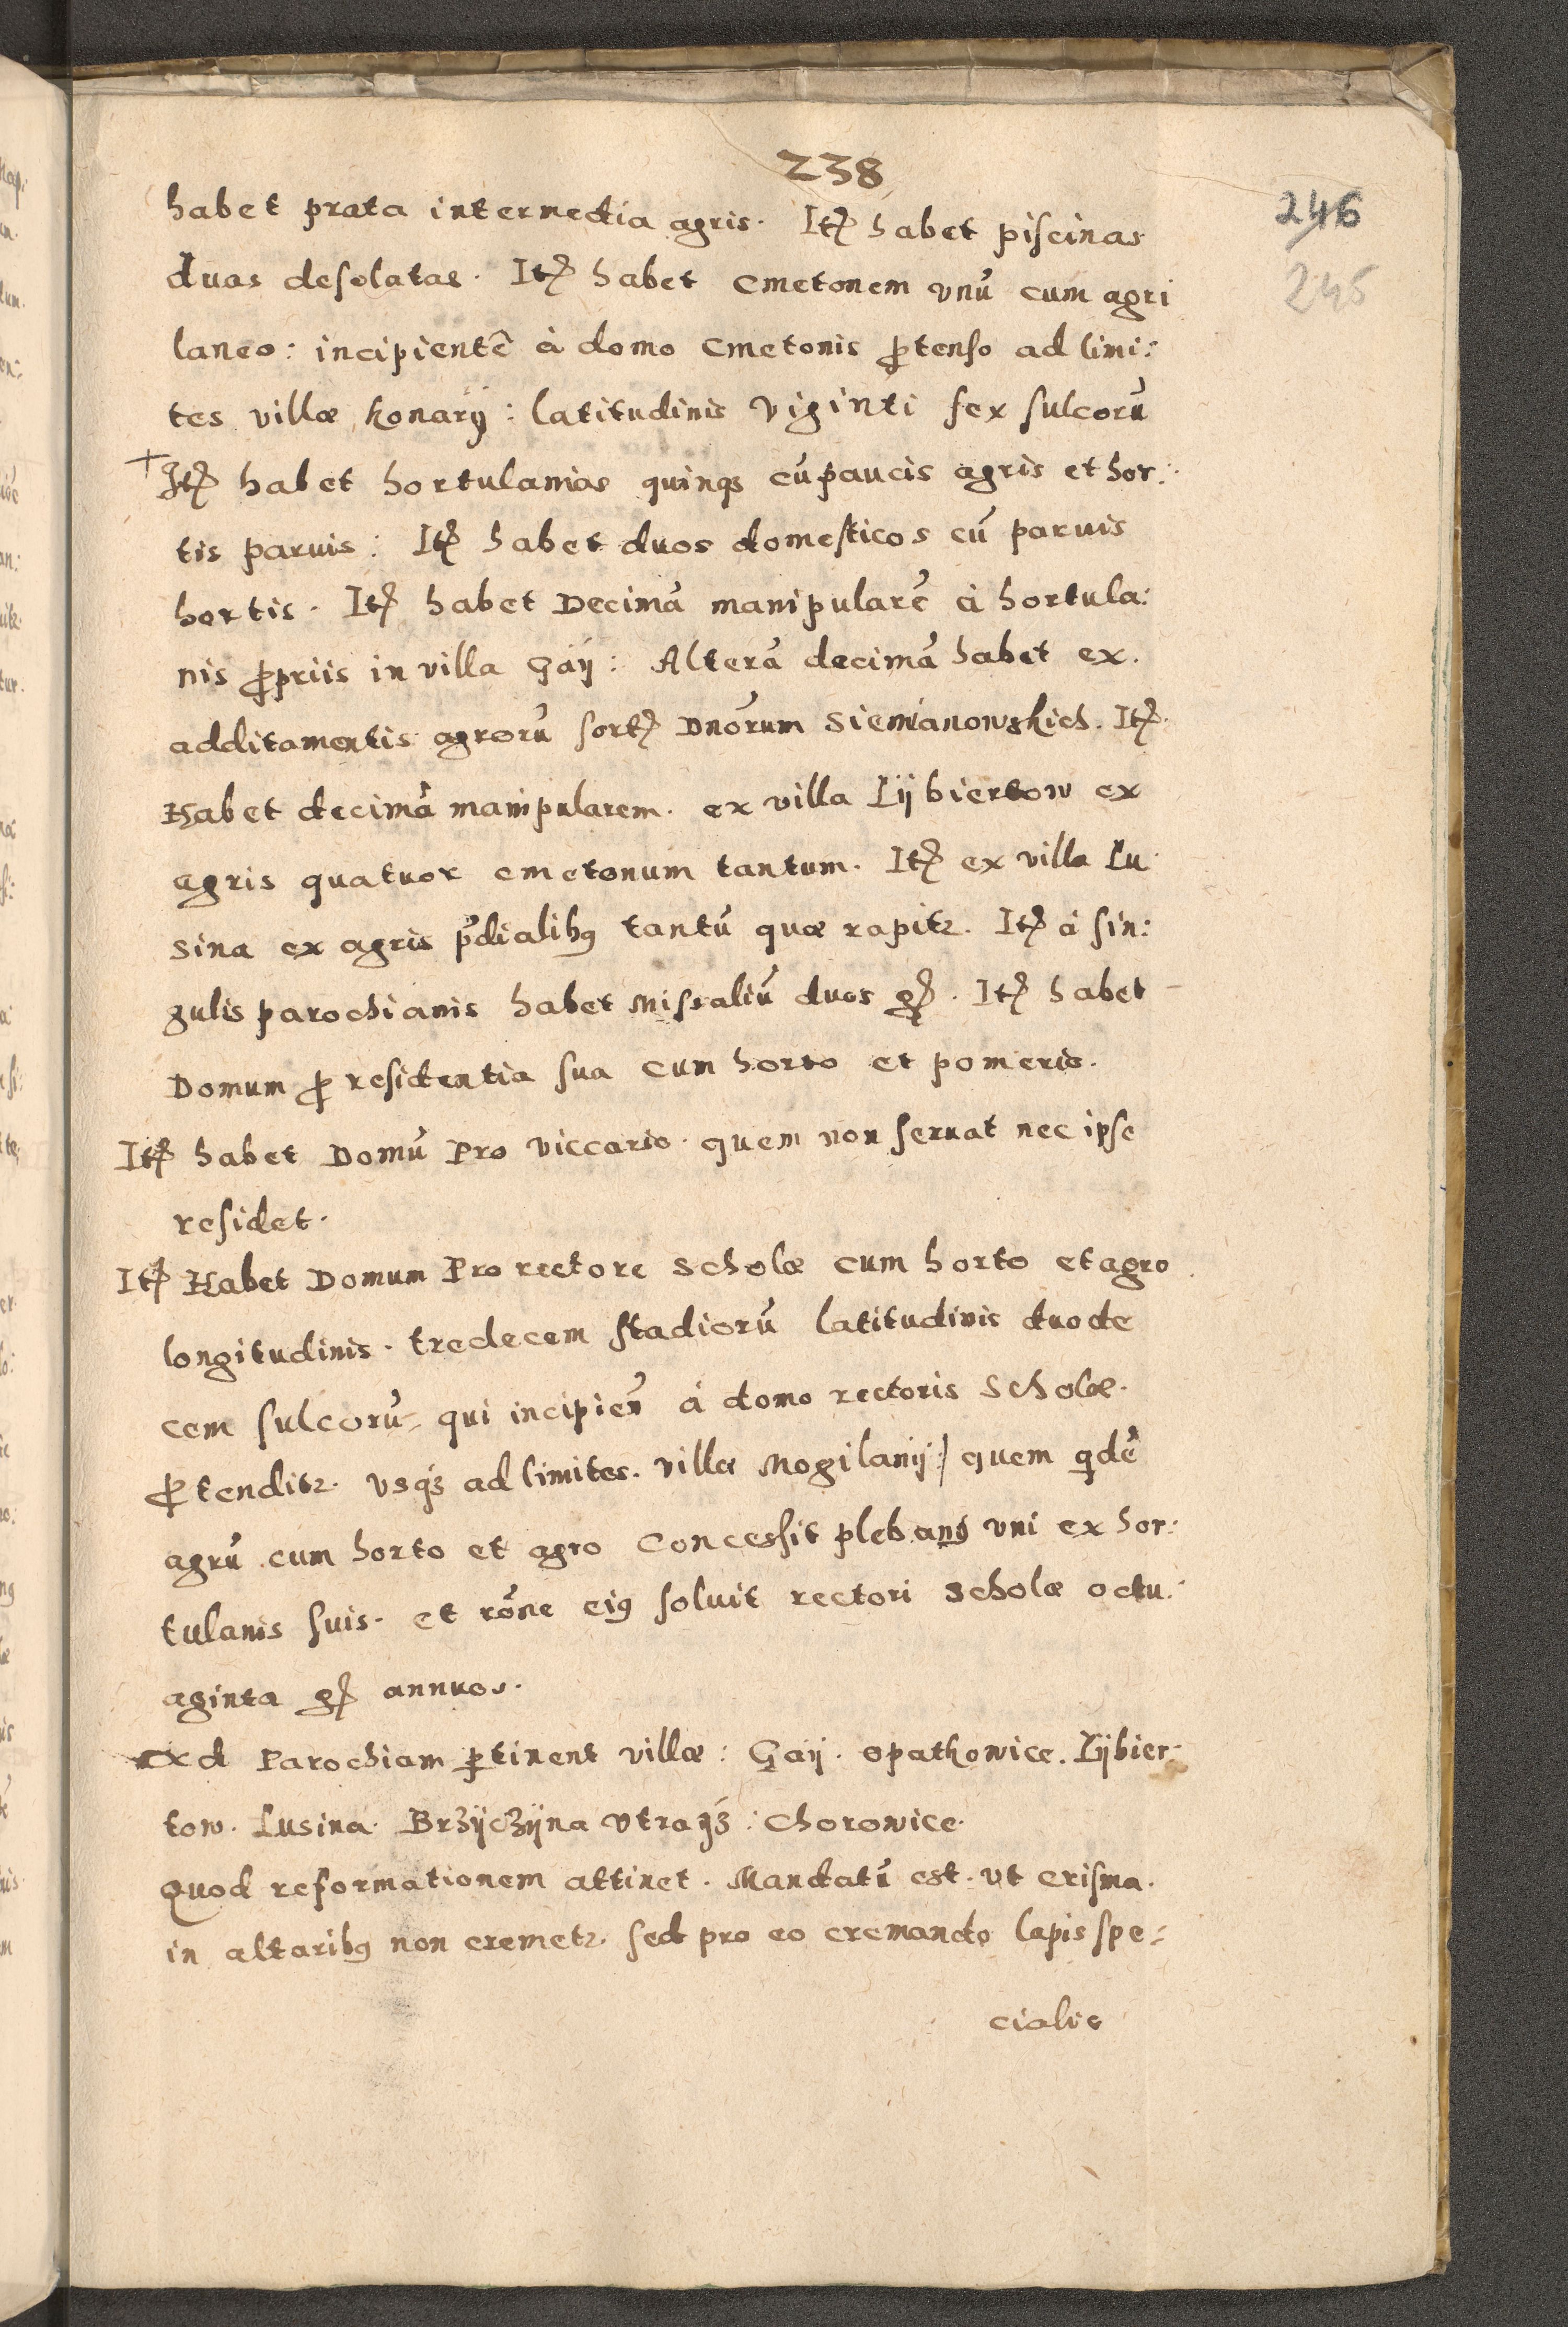 238
246
245
habet prata intermedia agris. Itẽ habet piscinas
duas desolatas. Itẽ habet Cmetonem vnũ cum agri
laneo: incipientẽ à domo Cmetonis ꝓtenso ad limi:
tes villæ Konary: latitudinis viginti sex sulcorũ
+ Itẽ habet hortulanias quinqꝫ cũ paucis agris et hor:
tis paruis: Itẽ habet duos domesticos cũ paruis
hortis. Itẽ habet Decimã manipularẽ à hortula:
nis ꝓpriis in villa Gaÿ: Alterã decimã habet ex
additamentis agrorũ sortẽ Dnõrum Siemianowskich. Itẽ
Habet decimã manipularem. ex villa Lÿbiertow ex
agris quatuor cmetonum tantum. Itẽ ex villa Lu
sina ex agris p̃dialibꝰ tantũ quæ rapitꝛ. Itẽ à sin:
gulis parochianis habet Missaliũ duos gꝭ. Itẽ habet
Domum ꝓ residentia sua cum horto et pomerio.
Itẽ habet Domũ Pro viccario. quem non seruat nec ipse
residet.
Itẽ Habet Domum Pro rectore Scholæ cum horto et agro
longitudinis. tredecem stadiorũ latitudinis duode
cem sulcorũ, qui incipieñ à domo rectoris Scholæ.
ꝓtenditꝛ. vsqꝫ ad limites. villæ Mogilanÿ:| quem qdẽ
agrũ cum horto et agro Concessit plebanꝰ vni ex hor:
tulanis suis. et rõne eiꝰ soluit rectori Scholæ octu:
aginta gꝭ annuos.
Ad Parochiam ꝑtinent villæ: Gaÿ. Opatkowice. Lÿbier
tow. Lusina. Brzÿczÿna vtraqꝫ: Chorowice.
Quod reformationem attinet. Mandatũ est. vt crisma.
in altaribꝰ non cremetꝛ. sed pro eo cremando lapis spe:
cialis